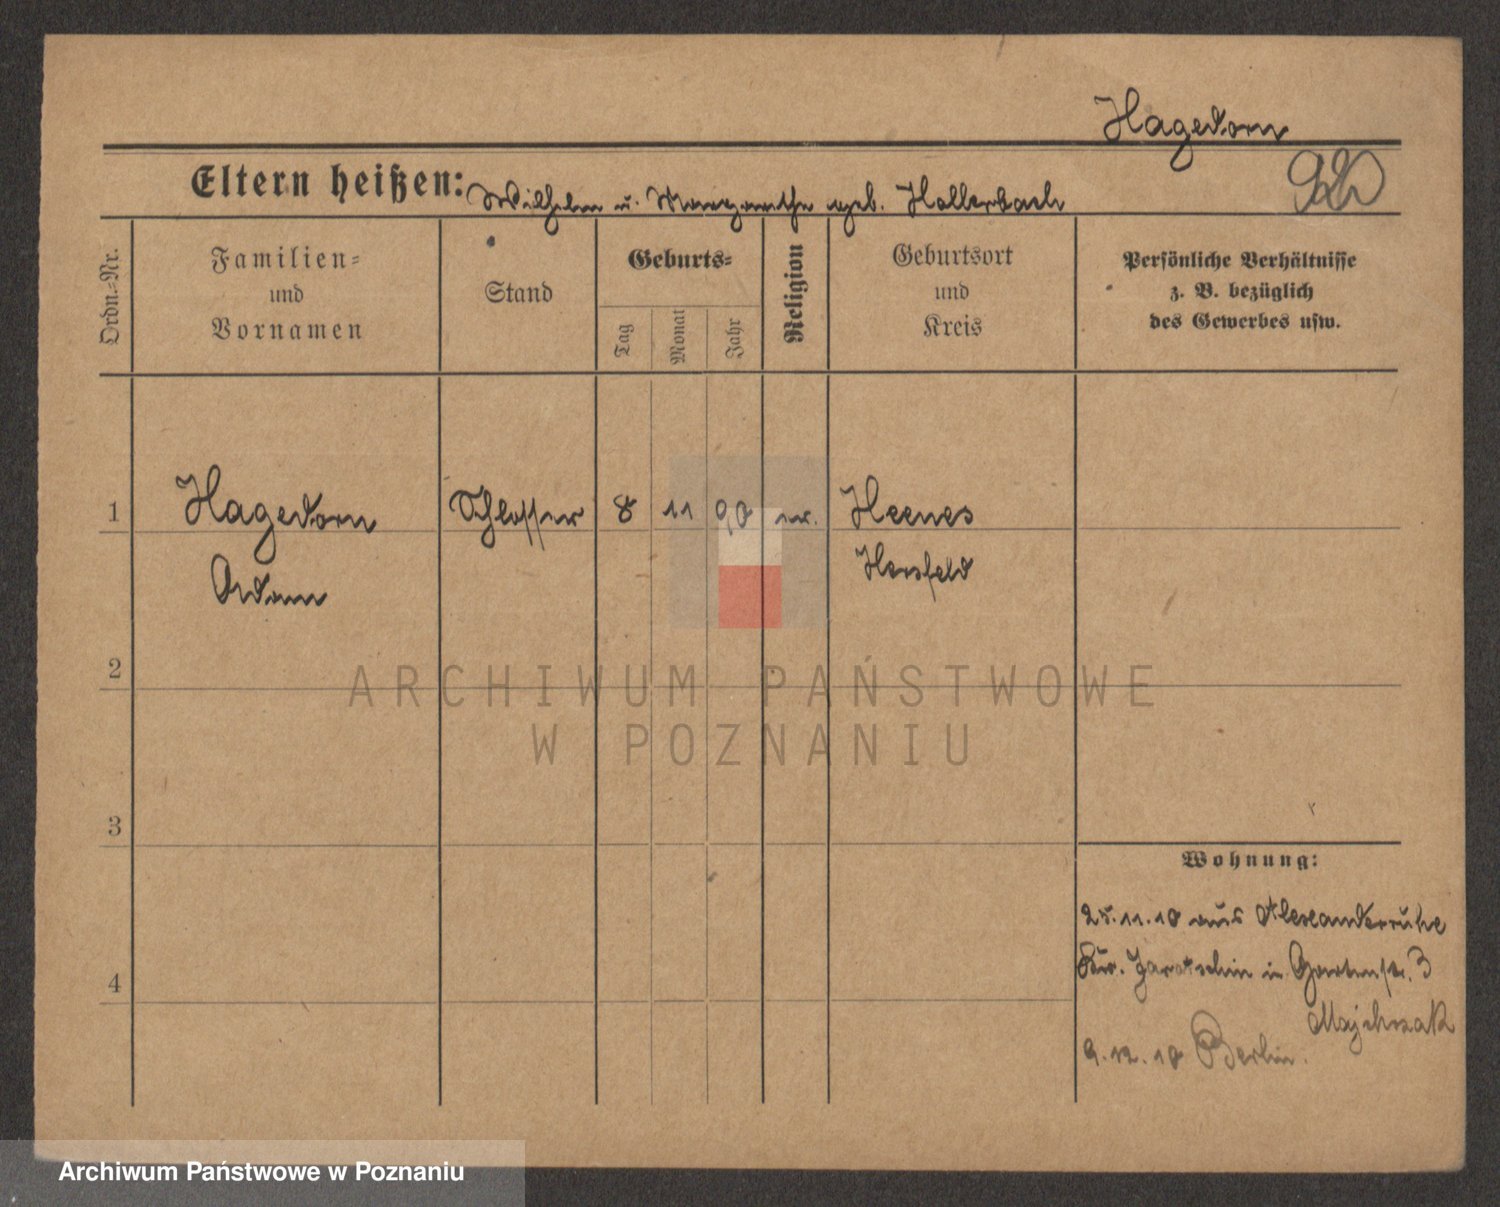 Hagedorn
Eltern heißen: Wilhelm u. Margarethe geb. Hollerbach
Ordn.-Nr.
Familien-
und
Vornamen
Stand
Geburts-
Tag
Monat
Jahr
Religion
Geburtsort
und
Kreis
Persönliche Verhältnisse
z. B. bezüglich
des Gewerbes usw.
1 Hagedorn Schlosser 8 11 90 ev. Heenes
Adam Hersfeld
2
3
4
Wohnung:
25.11.10 aus Alexanderruhe
Kr. Jarotschin in Gartenstr. 3
Majchrzak
9.12.10 Berlin.
ARCHIWUM PAŃSTWOWE
W POZNANIU
Archiwum Państwowe w Poznaniu